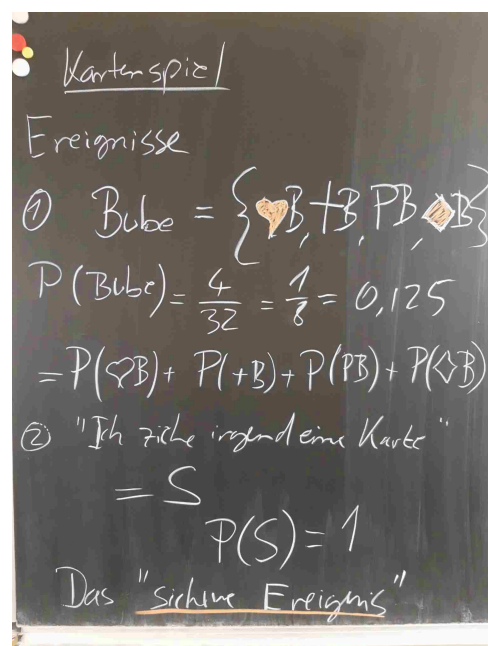 Kartenspiel
Ereignisse
① Bube = {♥B, +B, PB, ♦B}
P(Bube) = 4/32 = 1/8 = 0,125
= P(♡B) + P(+B) + P(PB) + P(♢B)
② "Ich ziehe irgendeine Karte"
= S
P(S) = 1
Das "sichere Ereignis"